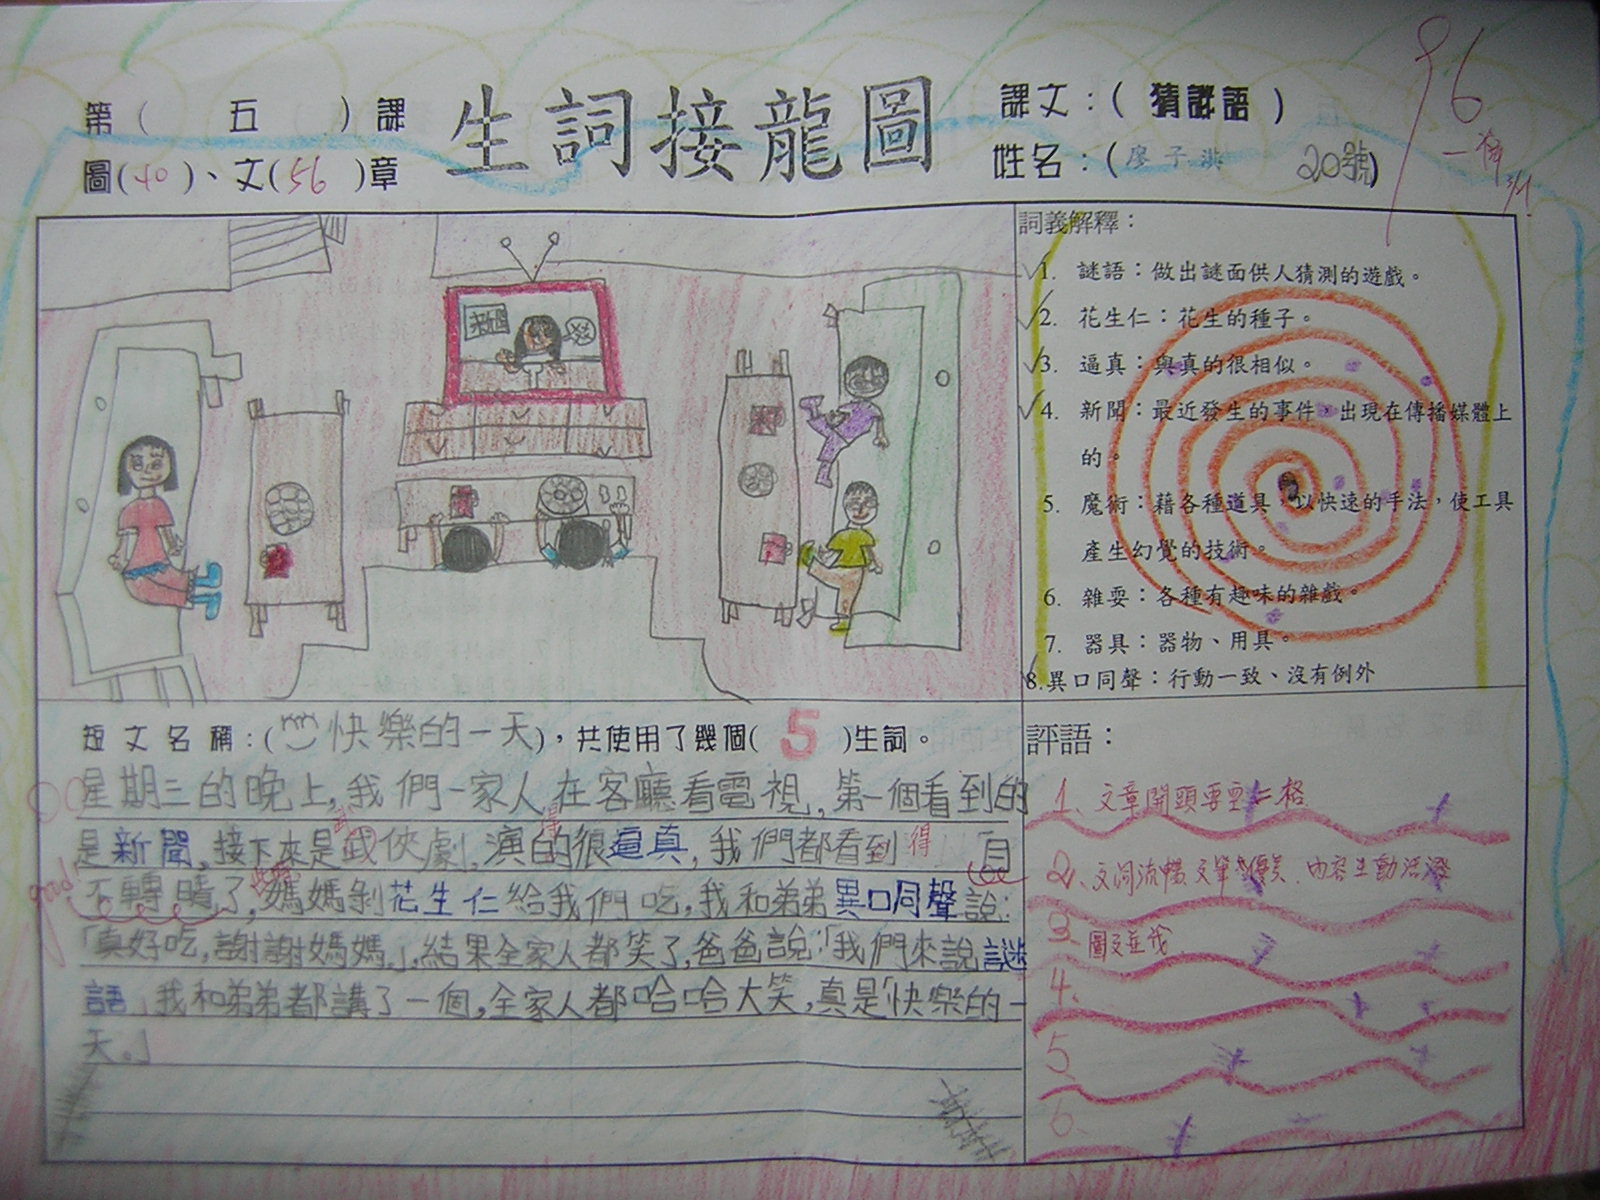 生詞接龍圖
第( 五 )課
圖(40)、文(56)章
課文:(猜謎語)
姓名:(廖子洪 20號)
96
新聞
詞義解釋:
1. 謎語:做出謎面供人猜測的遊戲。
2. 花生仁:花生的種子。
3. 逼真:與真的很相似。
4. 新聞:最近發生的事件,出現在傳播媒體上
的。
5. 魔術:藉各種道具,以快速的手法,使工具
產生幻覺的技術。
6. 雜耍:各種有趣味的雜戲。
7. 器具:器物、用具。
8.異口同聲:行動一致、沒有例外
短文名稱:(快樂的一天),共使用了幾個( 5 )生詞。
星期三的晚上,我們一家人在客廳看電視,第一個看到的
是新聞,接下來是武俠劇,演的很逼真,我們都看到 得 「目
不轉睛了,媽媽剝花生仁給我們吃,我和弟弟異口同聲說:
「真好吃,謝謝媽媽。」,結果全家人都笑了,爸爸說:「我們來說謎
語」我和弟弟都講了一個,全家人都哈哈大笑,真是「快樂的一
天。」
得
good!
評語:
1、文章開頭要空二格
2、文詞流暢 文筆優美、內容生動活潑
3、圖文並茂
4、
5、
6、